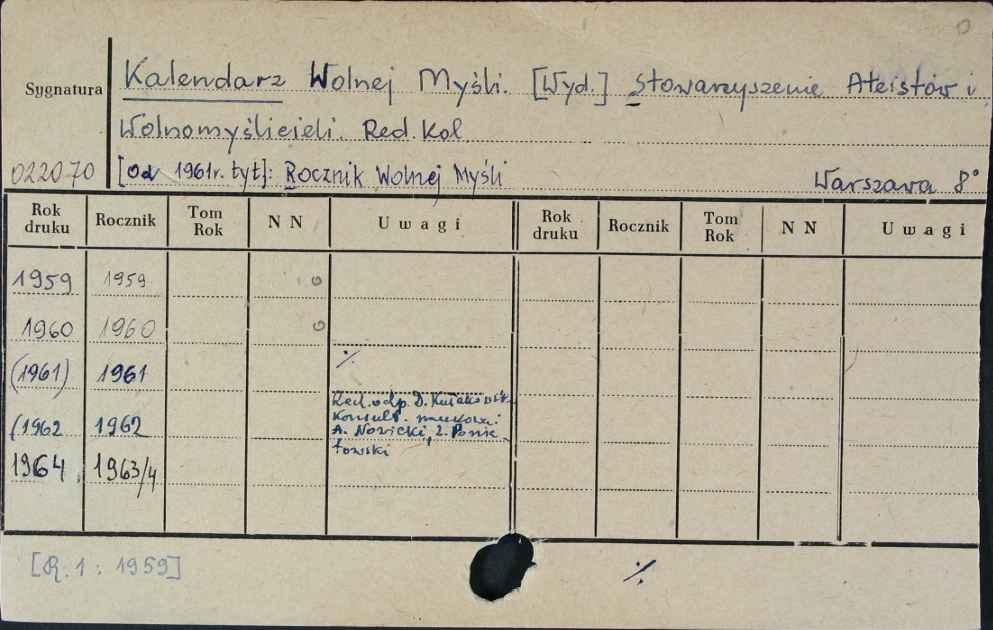 Sygnatura
Kalendarz Wolnej Myśli. [Wyd.] Stowarzyszenie Ateistów i
Wolnomyślicieli. Red. Kol.
022070 [Od 1961r. tyt]: Rocznik Wolnej Myśli Warszawa 8°
Rok druku Rocznik Tom Rok NN Uwagi Rok druku Rocznik Tom Rok NN Uwagi
1959 1959
1960 1960
(1961) 1961 ./.
Red. odp.
Konsult. naukowi:
(1962 1962 A. Nowicki, Z. Ponia-
towski
1964 1963/4
[R. 1 : 1959] ./.